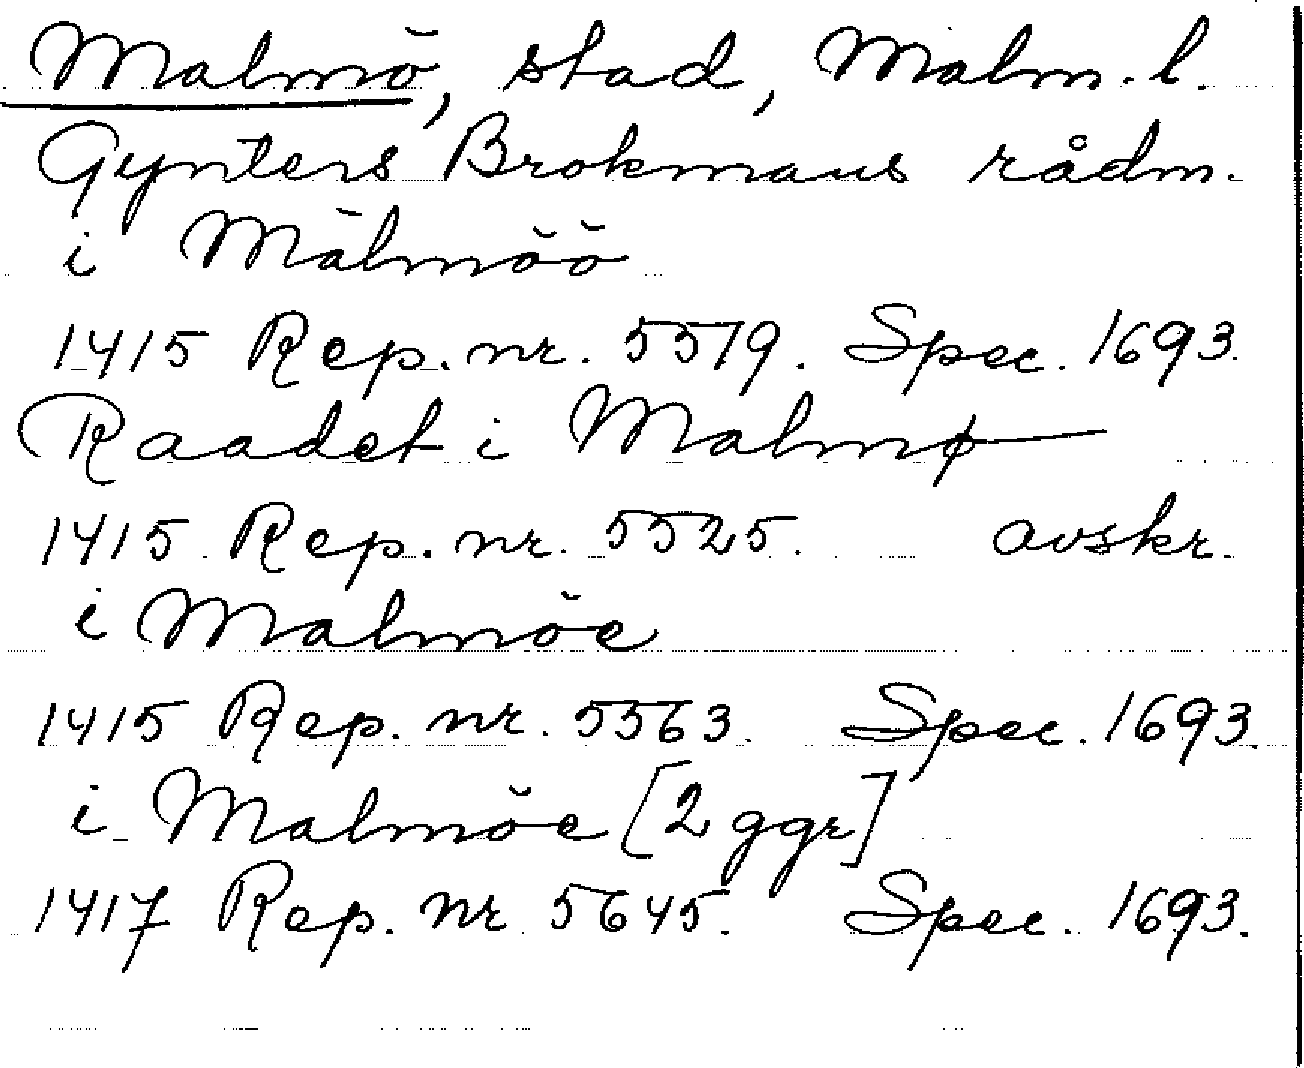 Malmö, stad, Malm. l.
Gynters Brokmans rådm.
i Mälmöö
1415 Rep. nr. 5519. Spec. 1693.
Raadet i Malmø
1415. Rep. nr. 5525. avskr.
i Malmöe
1415 Rep. nr. 5563. Spec. 1693.
i Malmöe [2 ggr]
1417 Rep. nr. 5645. Spec. 1693.